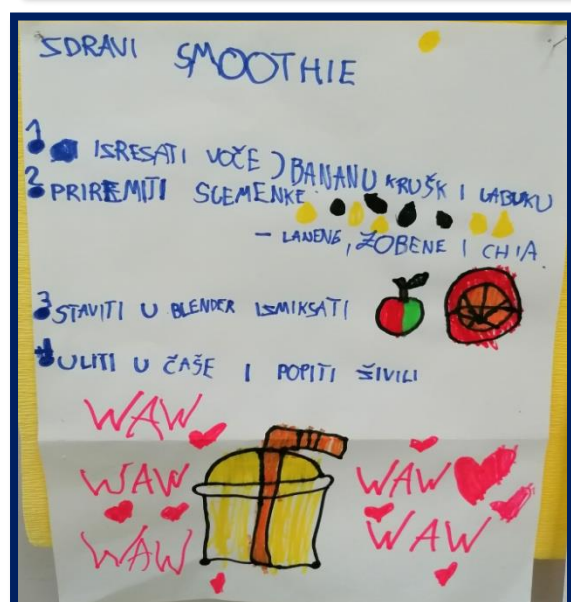 SDRAVI SMOOTHIE
1. ISRESATI VOČE) BANANU KRUŠK I LABUKU
2. PRIREMITI SGEMENKE
- LANENG, ZOBENE I CHIA
3 STAVITI U BLENDER ISMIKSATI
4 ULITI U ČAŠE I POPITI ŠIVILI
WAW
WAW WAW
WAW WAW